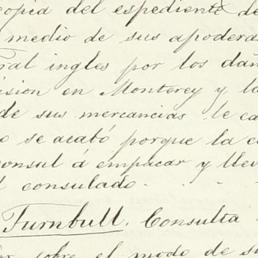 copia del espediente de
medio de sus apodera
ral ingles por los dañ
ision en Monterey y la
de sus mercancias le ca
o se acabó porque la c
consul á empacar y llev
l consulado.
Turnbull. Consulta
sobre el modo de s